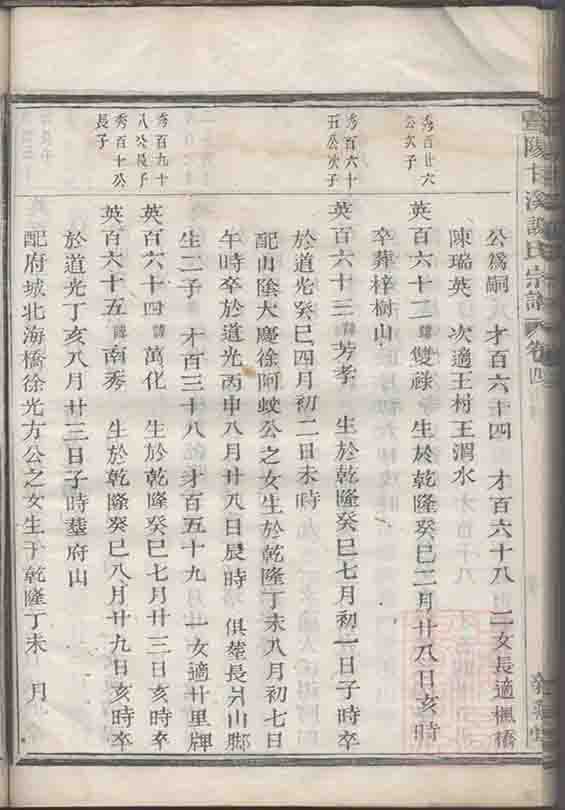 暨陽甘溪 氏宗譜 卷四
公爲嗣 才百六十四 才百六十八 二女長適楓橋
陳瑞英 次適王村王渭水
秀百廿六公次子
英百六十二諱雙祿 生於乾隆癸巳二月廿八日亥時
卒葬梓樹山
秀百六十五公次子
英百六十三諱芳孝 生於乾隆癸巳七月初一日子時卒
於道光癸巳四月初二日未時
配山陰大慶徐阿蛟公之女生於乾隆丁未八月初七日
午時卒於道光丙申八月廿八日辰時 俱塟長 山脚
生二子 才百三十八 才百五十九 一女適廿里牌
秀百九十八公長子
英百六十四諱萬化 生於乾隆癸巳七月廿三日亥時卒
秀百十公長子
英百六十五諱南秀 生於乾隆癸巳八月廿九日亥時卒
於道光丁亥八月廿三日子時塟府山
配府城北海橋徐光方公之女生于乾隆丁未 月